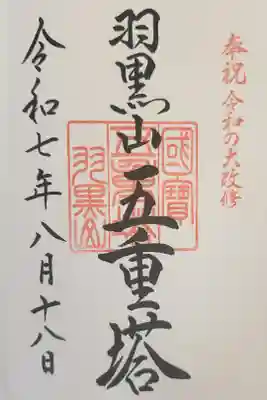 奉祝 令和の大改修
羽黒山五重塔
國寶
羽黒山
令和七年八月十八日